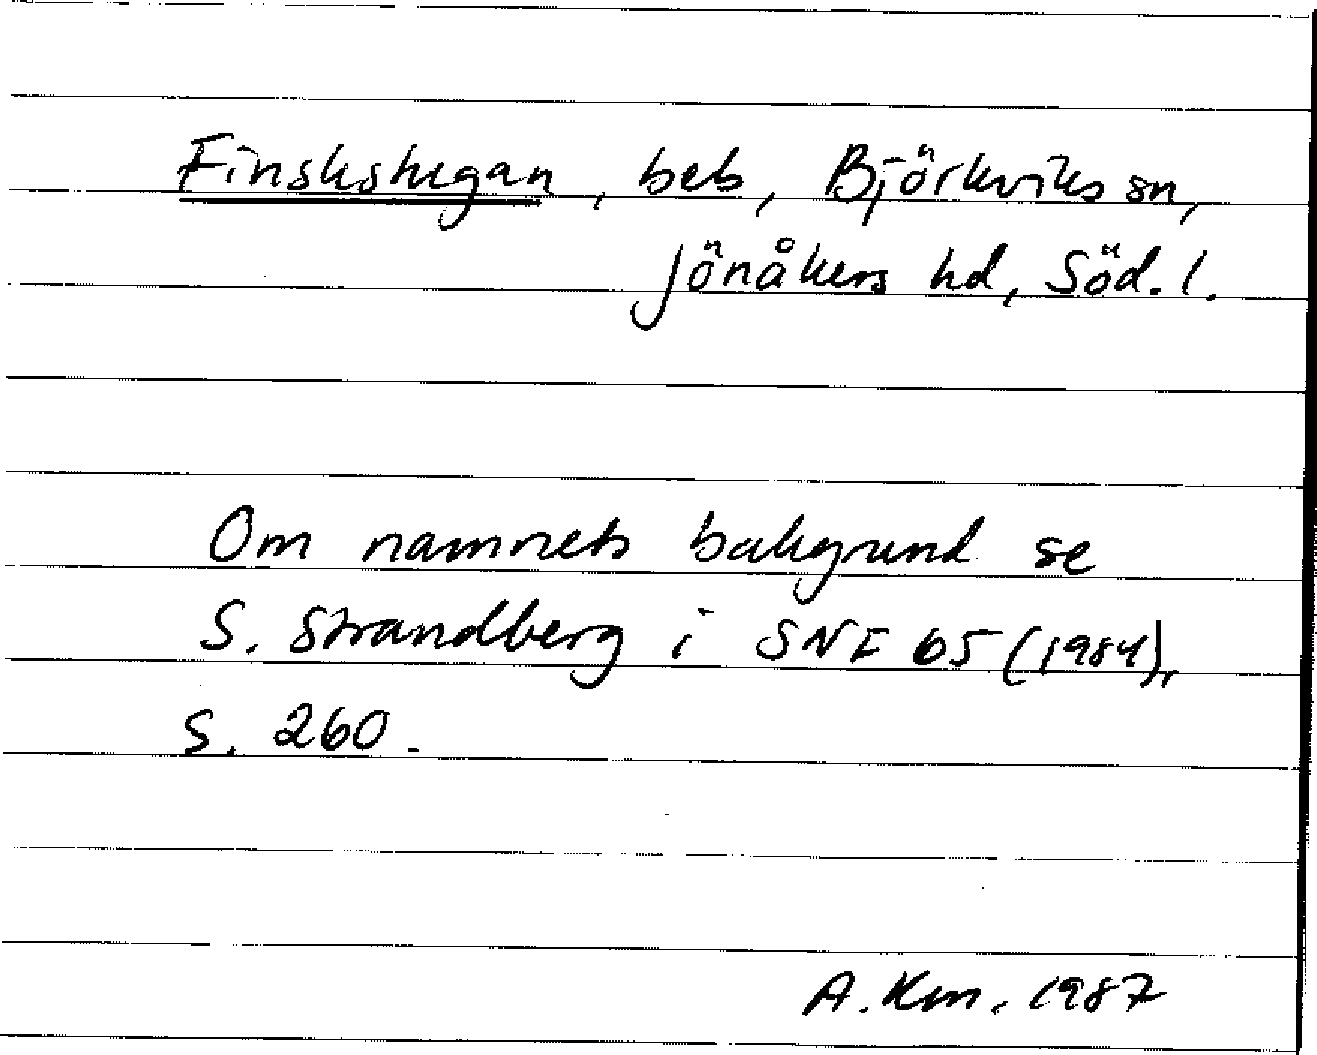 Finskstugan, beb, Björkviks sn,
Jönåkers hd, Söd. l.
Om namnets bakgrund se
S. Strandberg i SNF 65 (1984),
s. 260.
A. Km. 1987